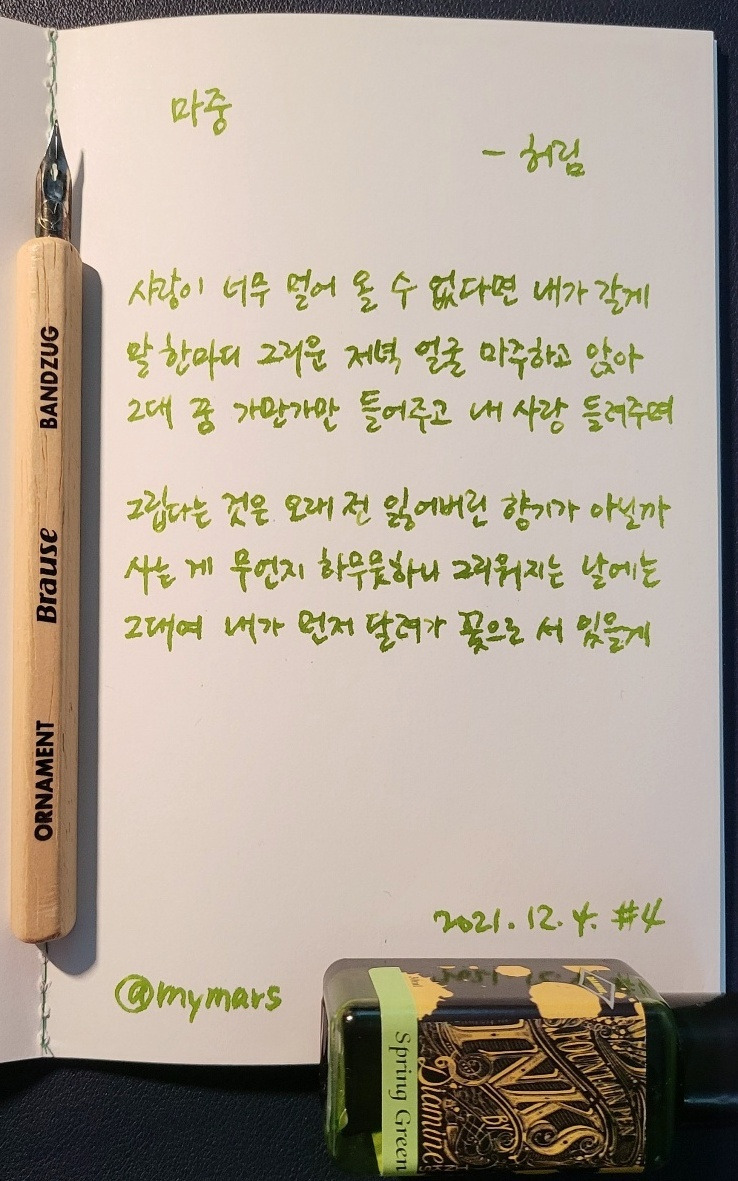 마중
- 허림
사랑이 너무 멀어 올 수 없다면 내가 갈게
말 한마디 그리운 저녁 얼굴 마주하고 앉아
그대 꿈 가만가만 들어주고 내 사랑 들려주며
그립다는 것은 오래 전 잃어버린 향기가 아닐까
사는 게 무언지 하무뭇하니 그리워지는 날에는
그대여 내가 먼저 달려가 꽃으로 서 있을게
2021. 12. 4. #4
@mymars
BANDZUG
Brause
ORNAMENT
Spring Green
FOUNTAIN PEN
INKS
BY
Diamine